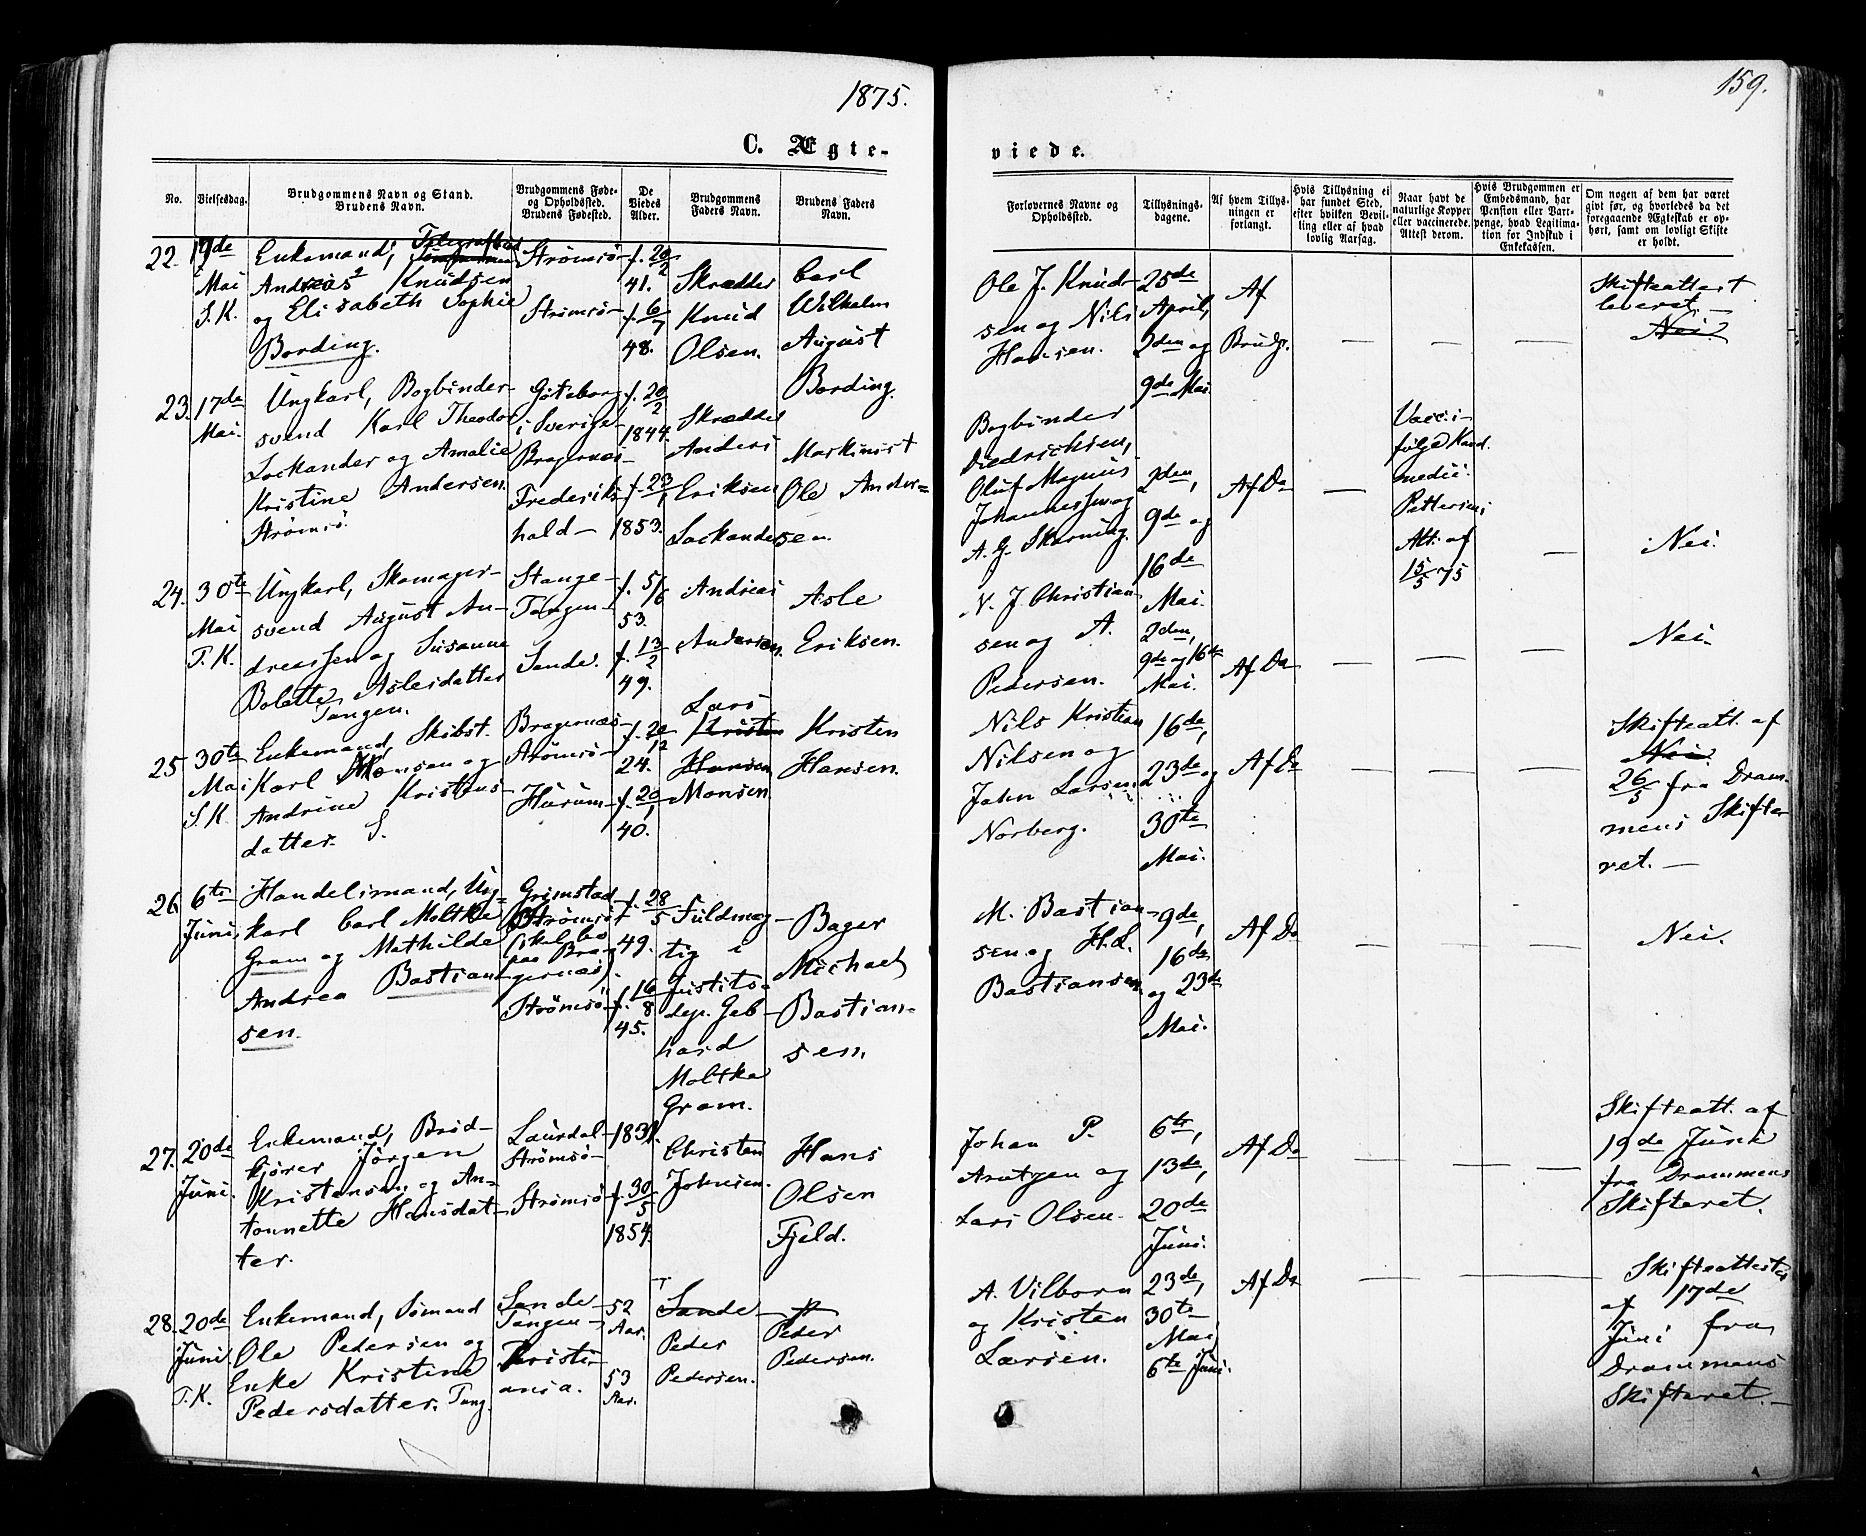 1875.
159.
C. Ægte-
viede.
No.
Vielsesdag.
Brudgommens Navn og Stand.
Brudens Navn.
Brudgommens Føde-
og Opholdssted.
Brudens Fødested.
De
Viedes
Alder.
Brudgommens
Faders Navn.
Brudens Faders
Navn.
Forlovernes Navne og
Opholdssted.
Tillysnings-
dagene.
Af hvem Tillys-
ningen er
forlangt.
Hvis Tillysning ei
har fundet Sted,
efter hvilken Bevil-
ling eller af hvad
lovlig Aarsag.
Naar havt de
naturlige Kopper
eller vaccinerede.
Attest derom.
Hvis Brudgommen er
Embedsmand, har
Pension eller Vart-
penge, hvad Legitima-
tion for Indskud i
Enkekassen.
Om nogen af dem har været
givt før, og hvorledes da det
foregaaende Ægteskab er op-
hørt, samt om lovligt Skifte
er holdt.
22.
19de
Mai
S. K.
Enkemand,
Andreas Knudsen
og Elisabeth Sophie
Bording.
Strømsø
Strømsø
f. 20/2
41.
f. 6/7
48.
Skrædder
Knud
Olsen.
Carl
Wilhelm
August
Bording.
Ole J. Knud-
sen og Nils
Hansen.
25de
April,
2den og
9de Mai.
Af
Brudg.
Skifteattest
leveret. —
Nei.
23.
17de
Mai.
Ungkarl, Bogbinder-
svend Karl Theodor
Lockander og Amalie
Kristine Andersen.
Strømsø.
Gøteborg
i Sverige
Bragernæs
Frederiks-
hald —
f. 20/2
1844.
f. 23/1
1853.
Skrædder
Anders
Eriksen
Lockander
Maskinist
Ole Ander=
sen.
Bogbinder
Diedrichsen,
Oluf Magnus
Johannessen og
A. G. Skarning.
2den,
9de og
16de
Mai.
Af Do
Vacc. i-
følge Kand.
medic.
Pettersens
Att. af
15/5 75
Nei.
24.
30te
Mai
T. K.
Ungkarl, Skomager-
svend August An-
dreassen og Susanne
Bolette Aslesdatter
Tangen.
Stange-
Tangen-
Sande.
f. 5/6
53.
f. 13/2
49.
Andreas
Andersen.
Asle
Eriksen.
N. J. Christian-
sen og A.
Pedersen.
2den,
9de og 16de
Mai.
Af Do
Nei.
25
30te
Mai
S. K.
Enkemand, Skibst.
Karl Monsen og
Andrine Kristens-
datter S.
Bragernæs
Strømsø
Hurum
f. 20/12
24.
f. 20/1
40.
Lars
Kristen
Hansen
Monsen
Kristen
Hansen.
Nils Kristian
Nilsen og
John Larsen
Norberg.
16de,
23de og
30te
Mai.
Af Do
Skifteatt. af
Nei.
26/5 fra Dram-
mens Skifte-
ret. —
26.
6te
Juni,
Handelsmand, Ung-
karl Carl Moltke
Gram og Mathilde
Andrea Bastian-
sen.
Grimstad
Strømsø
(skal bo
paa Bra-
gernæs).
Strømsø
f. 28/5
49.
f. 16/8
45.
Fuldmæg-
tig i
Justits-
dep. Geb-
hard
Moltke
Gram.
Bager
Michael
Bastian=
sen.
M. Bastian-
sen og H. L.
Bastiansen
9de,
16de
og 23de
Mai.
Af Do
Nei.
27.
20de
Juni.
Enkemand, Brød-
kjører Jørgen
Kristensen og An-
tonnette Hansdat-
ter.
Laurdal-
Strømsø-
Strømsø
1831.
f. 30/5
1854.
Christen
Johnsen.
Hans
Olsen
Fjeld.
Johan P.
Arntzen og
Lars Olsen.
6te,
13de,
20de
Juni.
Af Do
Skifteatt. af
19de Juni
fra Drammens
Skifteret.
28.
20de
Juni
T. K.
Enkemand, Sømand
Ole Pedersen og
Enke Kristine
Pedersdatter. Tang.
Sande
Tangen
Kristi-
ania.
52
Aar.
53
Aar.
Sande
Peder
Pedersen.
Peder
Pedersen.
A. Vilborn
og Kristen
Larsen.
23de,
30te
Mai,
6te Juni.
Af Do
Skifteattester
af 17de
Juni fra
Drammens
Skifteret. —